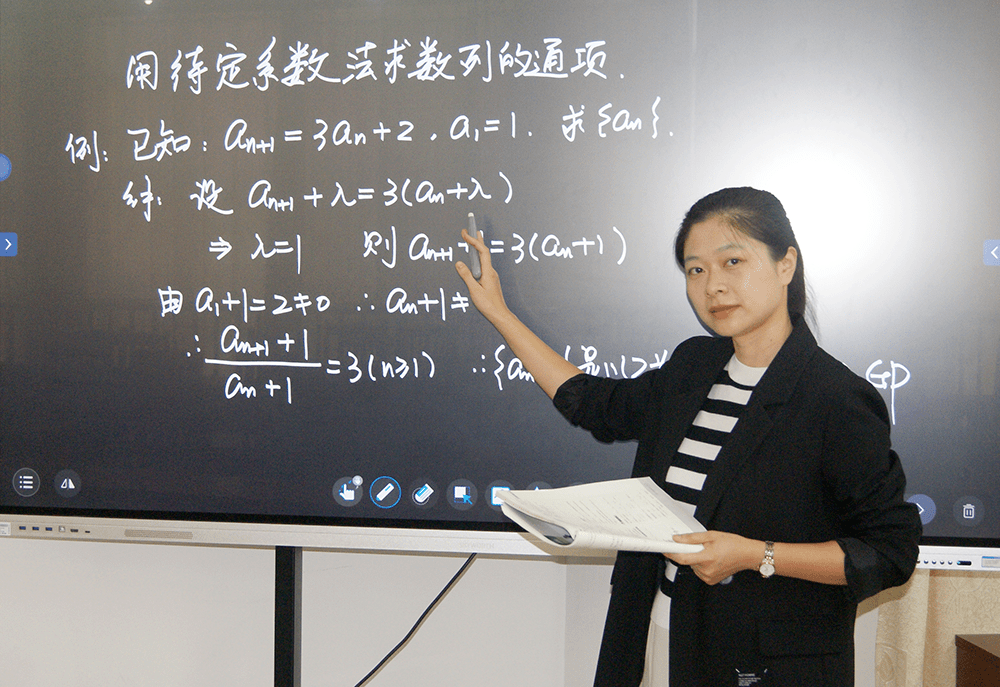 用待定系数法求数列的通项.
例: 已知: aₙ₊₁ = 3aₙ + 2 , a₁ = 1. 求{aₙ}.
解: 设 aₙ₊₁ + λ = 3(aₙ + λ)
⇒ λ = 1 则 aₙ₊₁ + 1 = 3(aₙ + 1)
由 a₁ + 1 = 2 ≠ 0 ∴ aₙ + 1 ≠
∴ (aₙ₊₁ + 1)/(aₙ + 1) = 3 (n ≥ 1) ∴ {aₙ 是以2为 GP